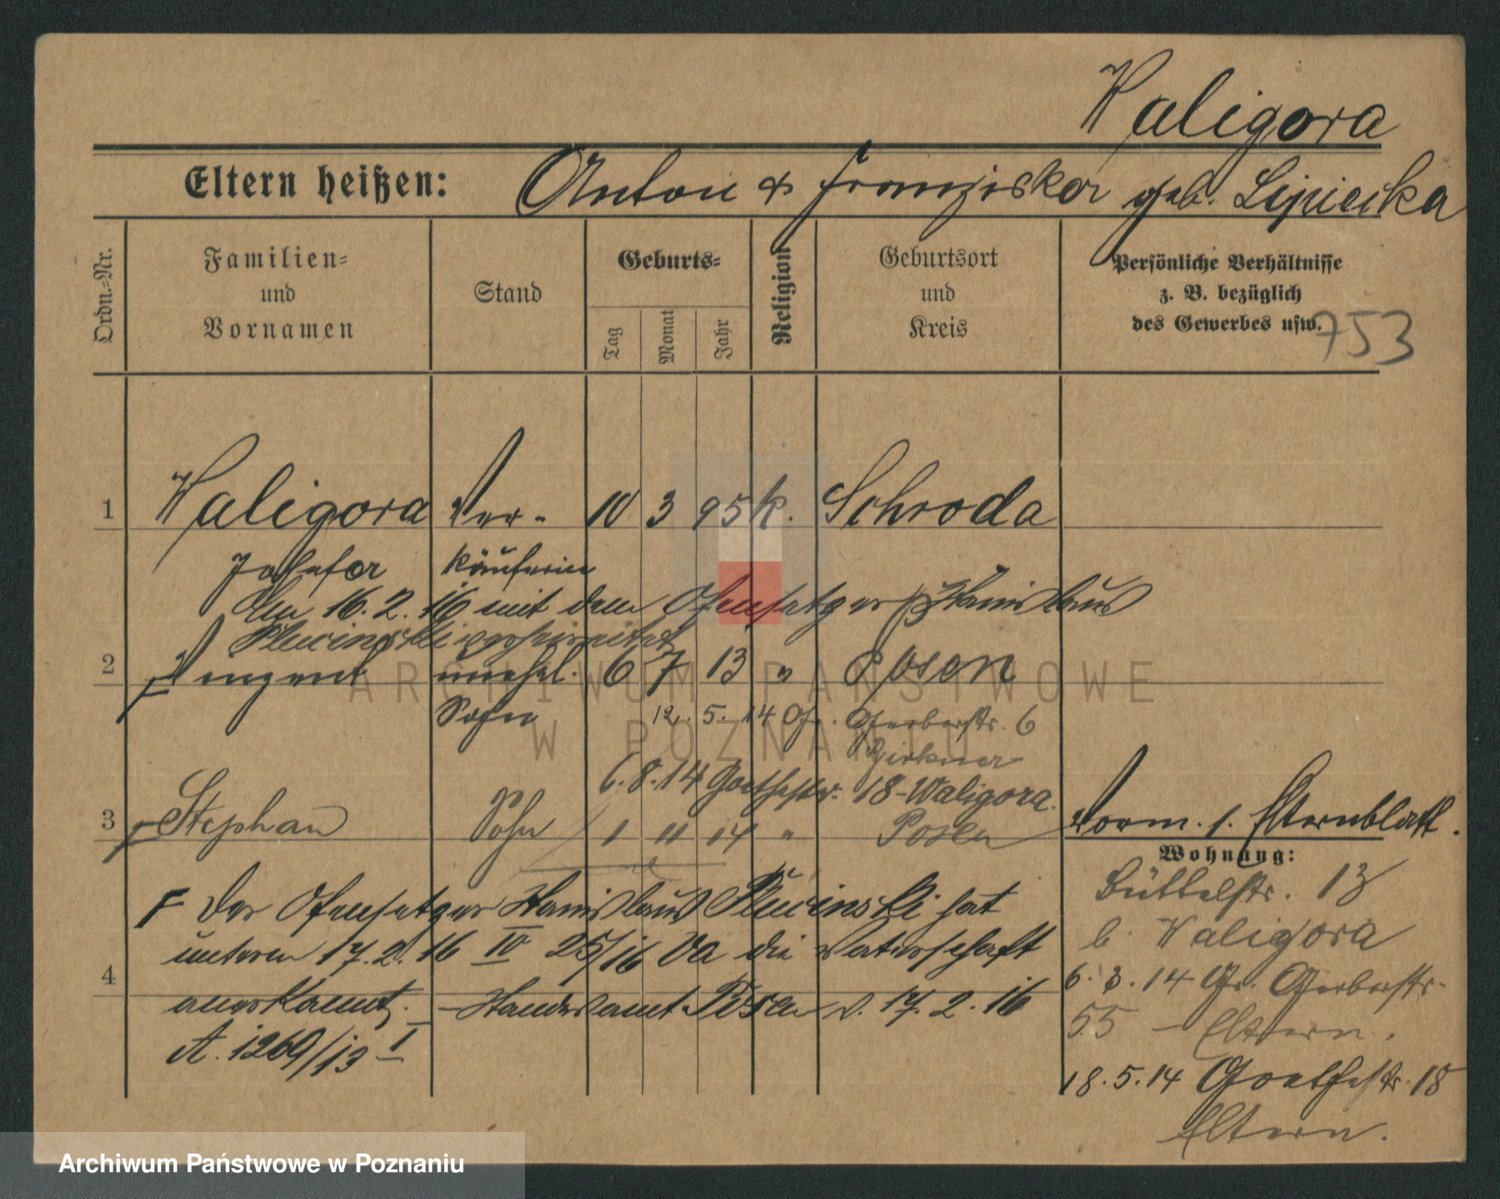 Waligora
Eltern heißen: Anton & Franziska geb. Lipiecka
Ordn.-Nr.
Familien-
und
Vornamen
Stand
Geburts-
Tag
Monat
Jahr
Religion
Geburtsort
und
Kreis
Persönliche Verhältnisse
z. B. bezüglich
des Gewerbes usw.
753
1 Waligora Ver- 10 3 95 k. Schroda
Josefa käuferin
Am 16.2.16 mit dem Ofensetzer Stanislaus
Plucinski verheiratet
2 Vinzent unehel. 6 7 13 " Posen
Sohn 12. 5. 14 Gr. Gerberstr. 6
6.8.14 Goethestr. 18 - Waligora.
3 Stephan Sohn 1 11 14 " Posen
Vorm. s. Elternblatt.
Wohnung:
Büttelstr. 13
b. Waligora
6. 3. 14 Gr. Gerberstr.
55 - Eltern.
18. 5. 14 Goethestr. 18
Eltern.
F Der Ofensetzer Stanislaus Plucinski hat
unterm 17. 2. 16 IV 25/16 Va die Vaterschaft
4 anerkannt. - Standesamt Posen v. 17. 2. 16
A. 1269/13 I
ARCHIWUM PAŃSTWOWE
W POZNANIU
Archiwum Państwowe w Poznaniu